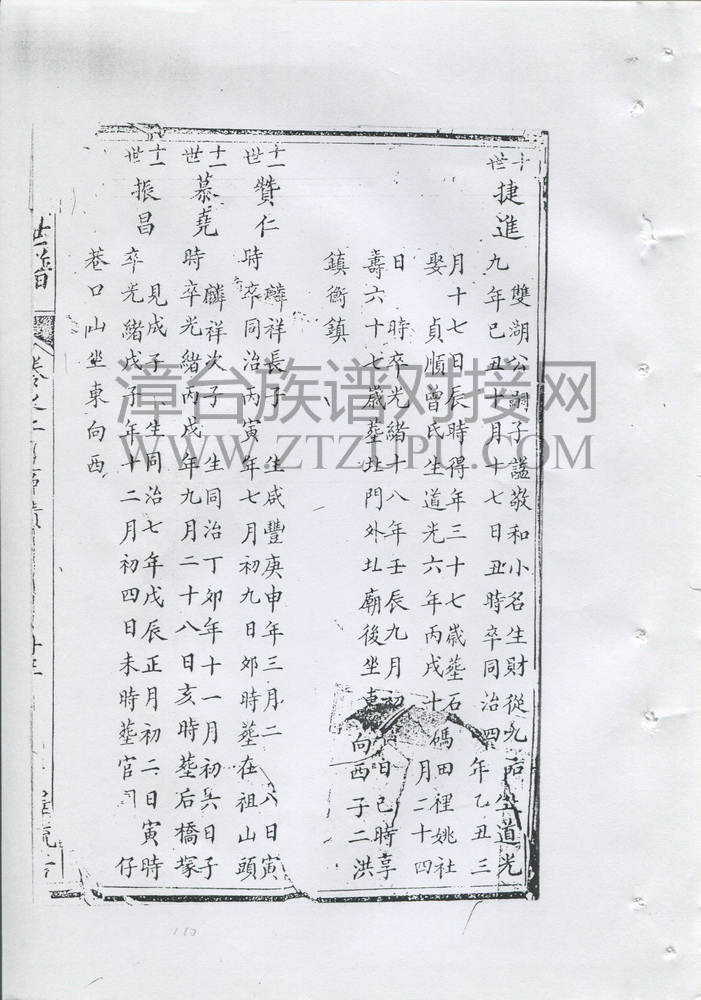 十世 捷進
雙湖公嗣子諡敬和小名生財從九 道光
九年己丑十月十七日丑時卒同治四年乙丑三
月十七日辰時得年三十七歲塟石碼田裡姚社
娶 貞順曾氏生道光六年丙戌十 月二十四
日 時卒光緒十八年壬辰九月初 日巳時享
壽六十七歲塟北門外北廟後坐東向西子二洪
鎮衡鎮
十一世 贊仁
麟祥長子 生咸豐庚申年三月二 八日寅
時卒同治丙寅年七月初九日卯時塟在祖山頭
十一世 慕堯
麟祥次子 生同治丁卯年十一月初六日子
時卒光緒丙戌年九月二十八日亥時塟后橋塚
十一世 振昌
見成子 生同治七年戊辰正月初二日寅時
卒光緒戊子年十二月初四日未時塟官 仔
巷口山坐東向西
世譜 卷之二
漳台族谱对接网
WWW.ZTZUPU.COM
110